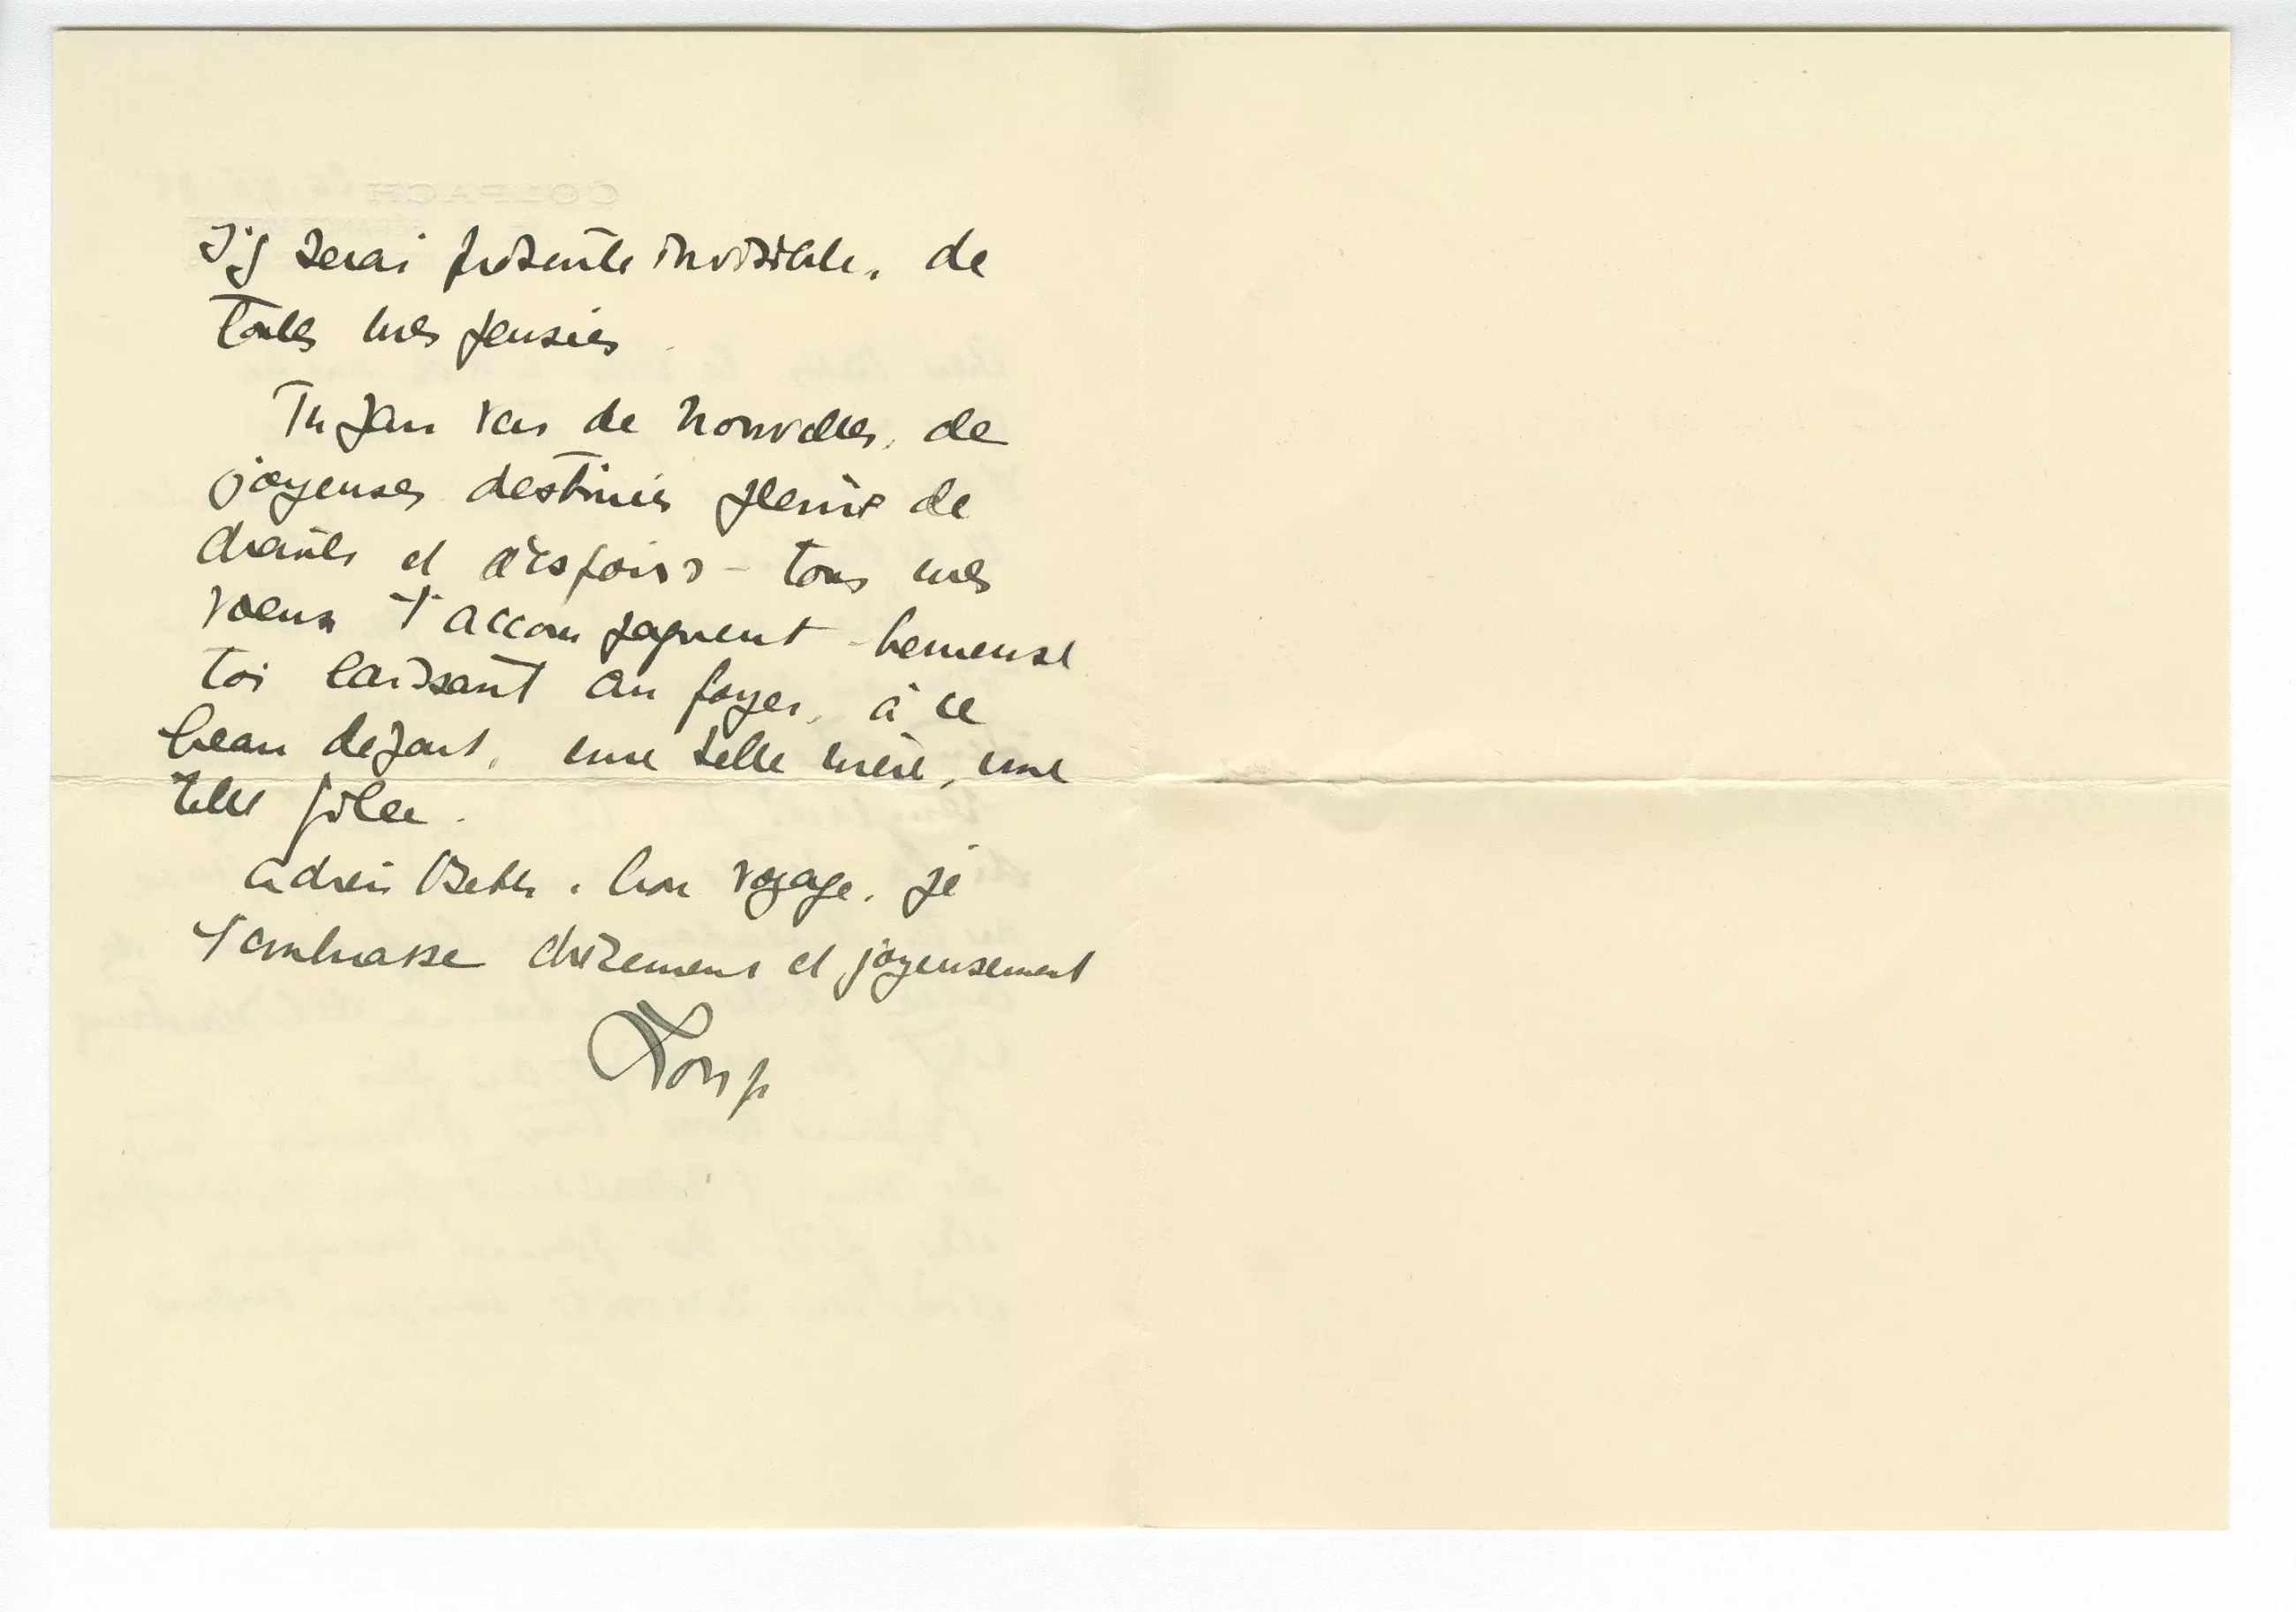 J'y serai présente invisible, de
toutes mes pensées
Tu pars vers de nouvelles, de
joyeuses destinées pleines de
et d'espoirs – tous mes
voeux t'accompagnent heureuse
toi laissant au foyer, à ce
beau départ, une telle mère, une
telle fille.
adieu Bebby. bon voyage. je
t'embrasse chèrement et joyeusement
COLPACH